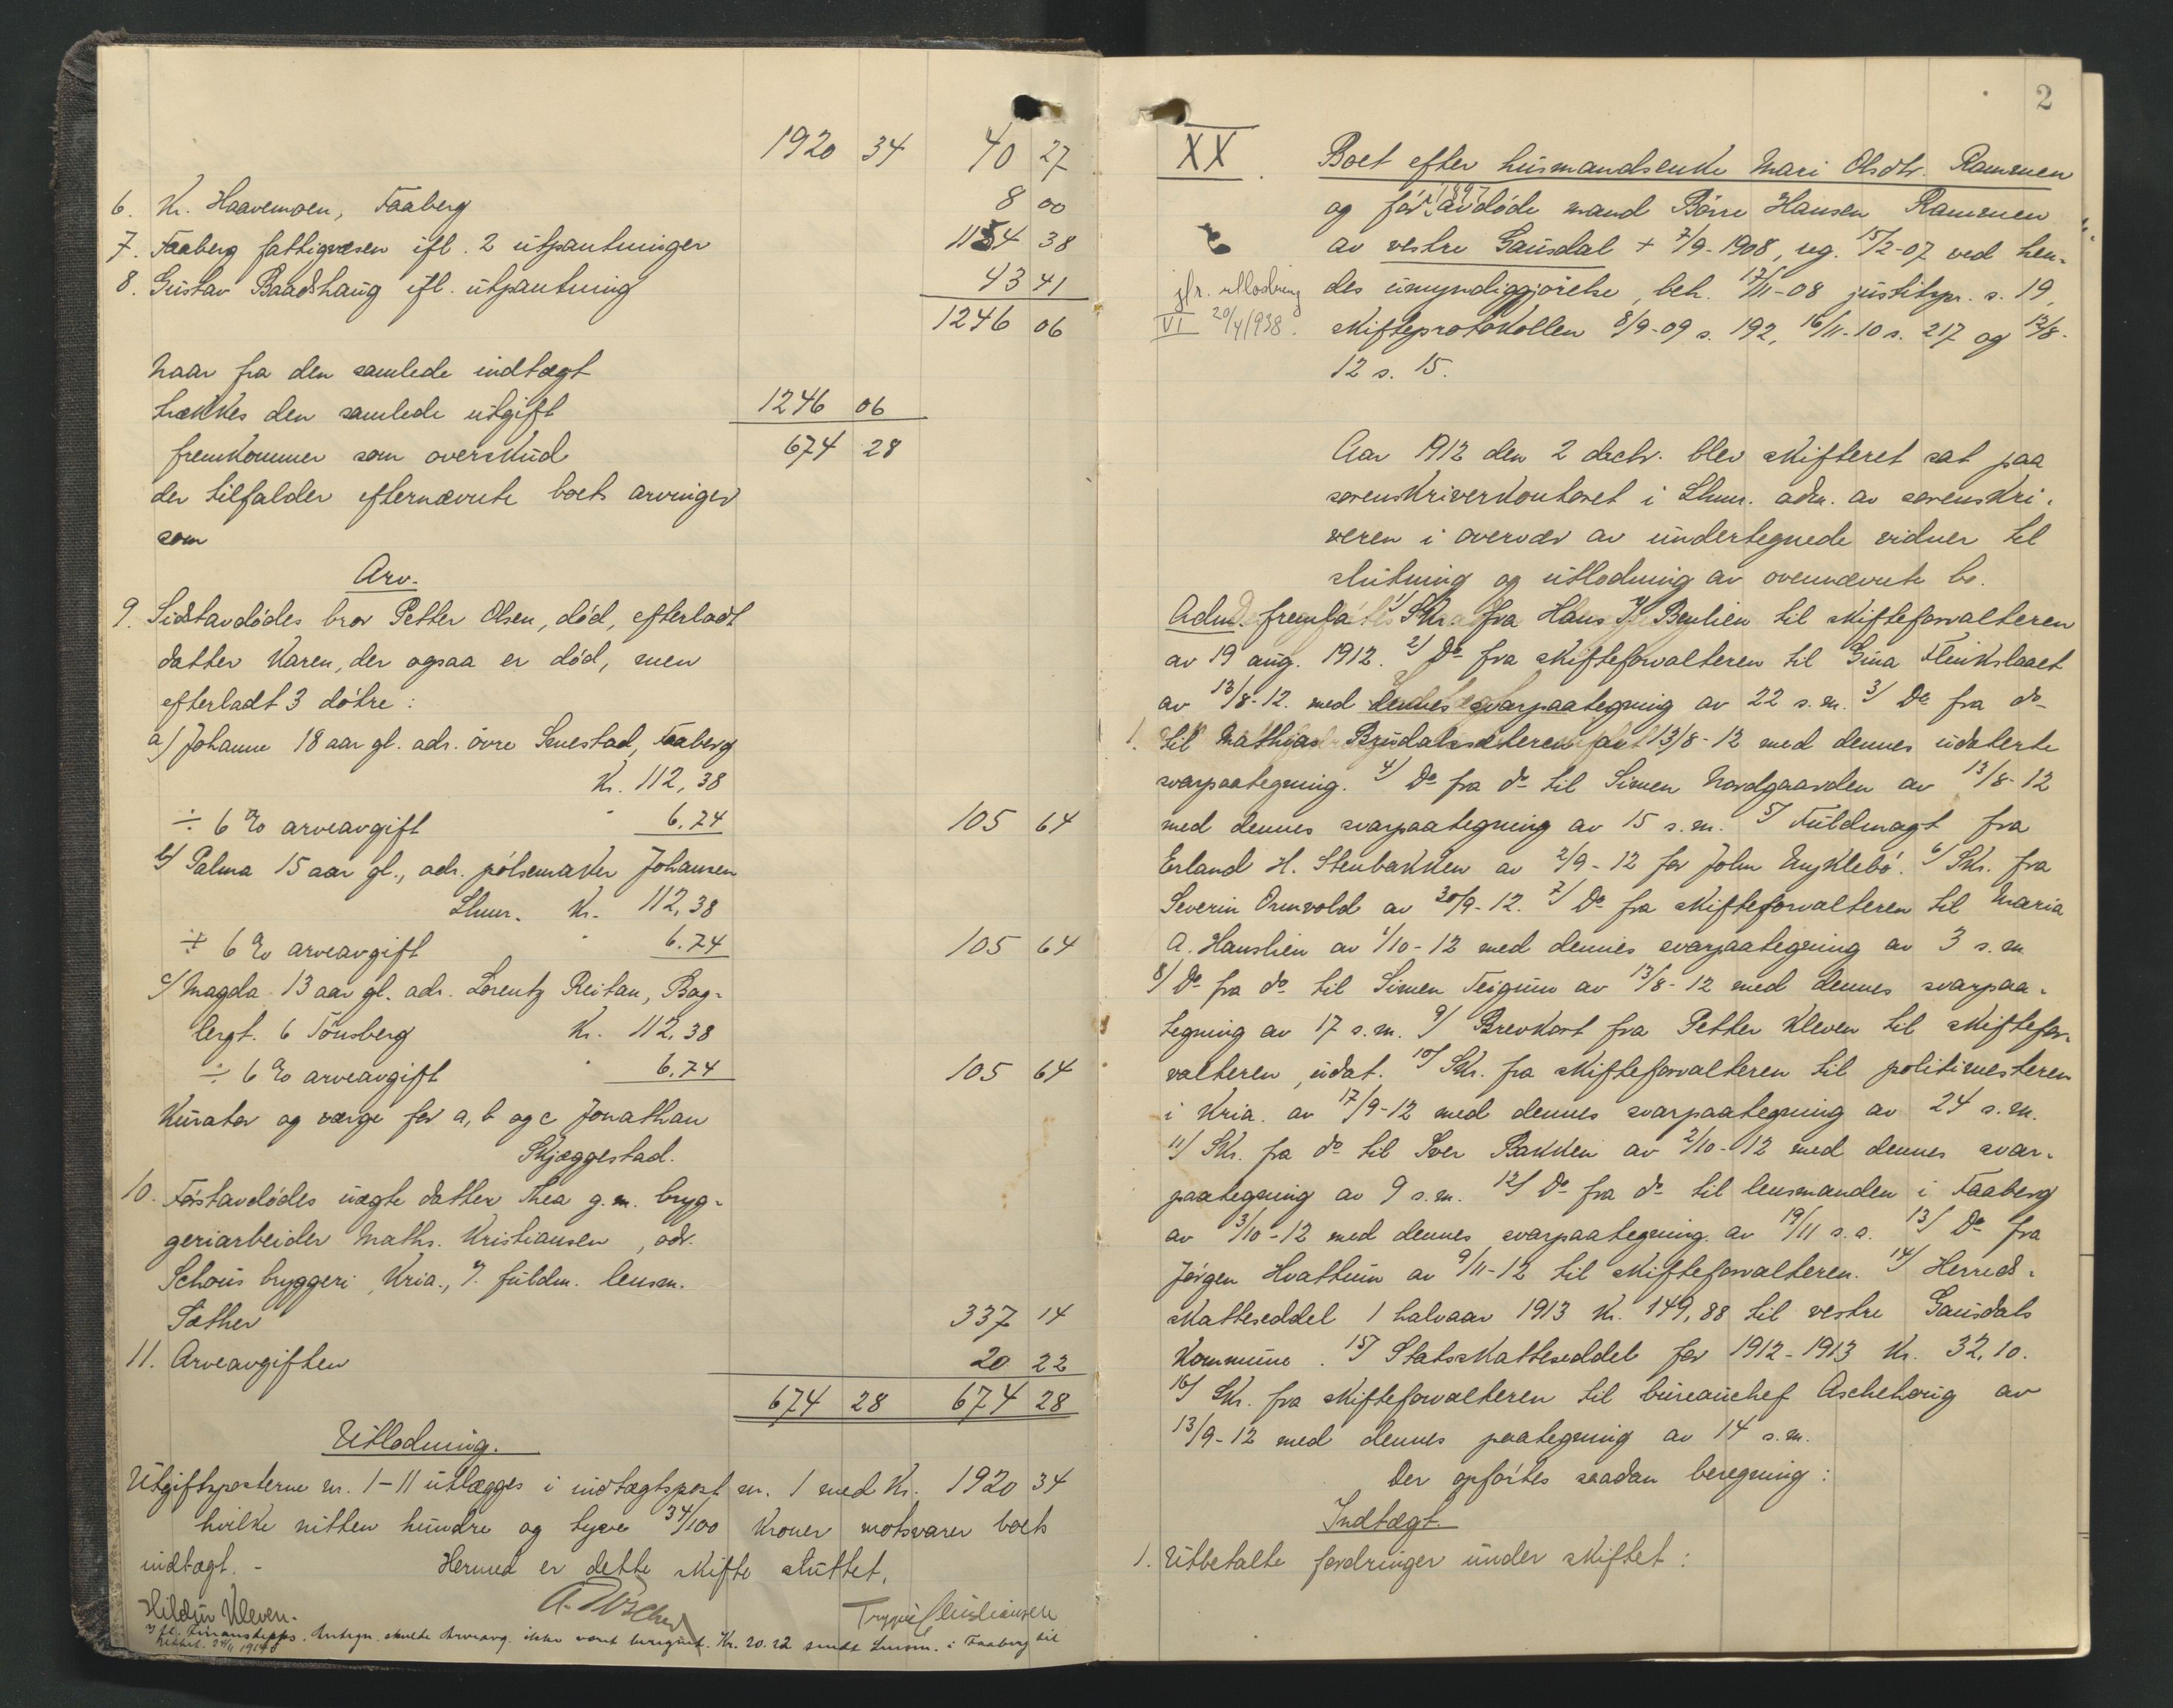 1920 34 40 27
6. Kr. Haavemoen, Faaberg 8 00
7. Faaberg fattigvæsen ifl. 2 utpantninger 1154 38
8. Gustav Baadshaug ifl. utpantning 43 41
1246 06
Naar fra den samlede indtægt
trækkes den samlede utgift 1246 06
fremkommer som overskud 674 28
der tilfalder efternævnte boets arvinger
som
Arv.
9. Sidstavdødes bror Petter Olsen, død, efterladt
datter Karen, der ogsaa er død, men
efterladt 3 døtre:
a) Johanne 18 aar gl. adr. övre Smestad, Faaberg
Kr. 112,38
÷ 6 % arveavgift " 6.74 105 64
b) Palma 15 aar gl., adr. pölsemaker Johansen
Lhmr. Kr. 112,38
÷ 6 % arveavgift " 6.74 105 64
c) Magda 13 aar gl. adr. Lorentz Reitan, Bag-
lergt. 6 Tönsberg Kr. 112,38
÷ 6 % arveavgift " 6.74 105 64
Kurator og værge for a, b og c Jonathan
Skjæggestad.
10. Förstavdødes uægte datter Thea g. m. bryg-
geriarbeider Maths. Kristiansen, adr.
Schous bryggeri, Kria., fuldm. lensm.
Sæther 337 14
11. Arveavgiften 20 22
674 28 674 28
Utlodning.
Utgiftsposterne nr. 1-11 utlægges i indtægtspost nr. 1 med Kr. 1920 34
hvilke nitten hundre og tyve 34/100 kroner motsvarer boets
indtægt. - Hermed er dette skifte sluttet.
Hildur Kleven. Trygve Christiansen
ikke været beregnet. Kr. 20.22 sendt Lensm. i Faaberg til
2
XX. Boet efter husmandsenke Mari Olsdtr. Rammen
1897
og før avdøde mand Börre Hansen Rammen
av vestre Gausdal + 7/9-1908, reg. 15/2-07 ved hen-
jfr. utlodning des umyndiggjörelse, beh. 17/11-08 justitspr. s. 19,
VI 20/4/938. skifteprotokollen 8/9-09 s. 192, 16/11-10 s. 217 og 12/8-
12 s. 15.
Aar 1912 den 2 dechr. blev skifteret sat paa
sorenskriverkontoret i Lhmr. adm. av sorenskri-
veren i overvær av undertegnede vidner til
slutning og utlodning av ovennævnte bo.
Adm. fremla: 1/ Skr. fra Hans J. Benlien til skifteforvalteren
av 19 aug. 1912. 2/ Do fra skifteforvalteren til Gina Flinkslaaet
av 13/8-12. med dennes svarpaategning av 22 s.m. 3/ Do fra do
1. til Mathias Brudalssæteren av 13/8-12 med dennes udaterte
svarpaategning. 4/ Do fra do til Simen Nordgaarden av 13/8-12
med dennes svarpaategning av 15 s.m. 5/ Fuldmagt fra
Erland H. Stenbakken av 2/9-12 for John Myklebö. 6/ Skr. fra
Severin Ormvold av 30/9-12. 7/ Do fra skifteforvalteren til Maria
A. Hanslien av 1/10-12 med dennes svarpaategning av 3 s.m
8/ Do fra do til Simen Teigum av 13/8-12 med dennes svarpaa-
tegning av 17 s.m. 9/ Brevkort fra Petter Kleven til skiftefor-
valteren, udat. 10/ Skr. fra skifteforvalteren til politimesteren
i Kria. av 17/9-12 med dennes svarpaategning av 24 s.m.
11/ Skr. fra do til Iver Bakken av 2/10-12 med dennes svar-
paategning av 9 s.m. 12/ Do fra do til lensmanden i Faaberg
av 3/10-12 med dennes svarpaategning av 19/11 s.a. 13/ Do fra
Jörgen Hvattum av 9/11-12 til skifteforvalteren. 14/ Herreds-
skatteseddel 1 halvaar 1913 Kr. 149,88 til vestre Gausdals
kommune. 15/ Statsskatteseddel for 1912-1913 Kr. 32,10.
16/ Skr. fra skifteforvalteren til bureauchef Aschehoug av
13/9-12 med dennes paategning av 14 s.m.
Der opförtes saadan beregning:
Indtægt.
1. Utbetalte fordringer under skiftet: